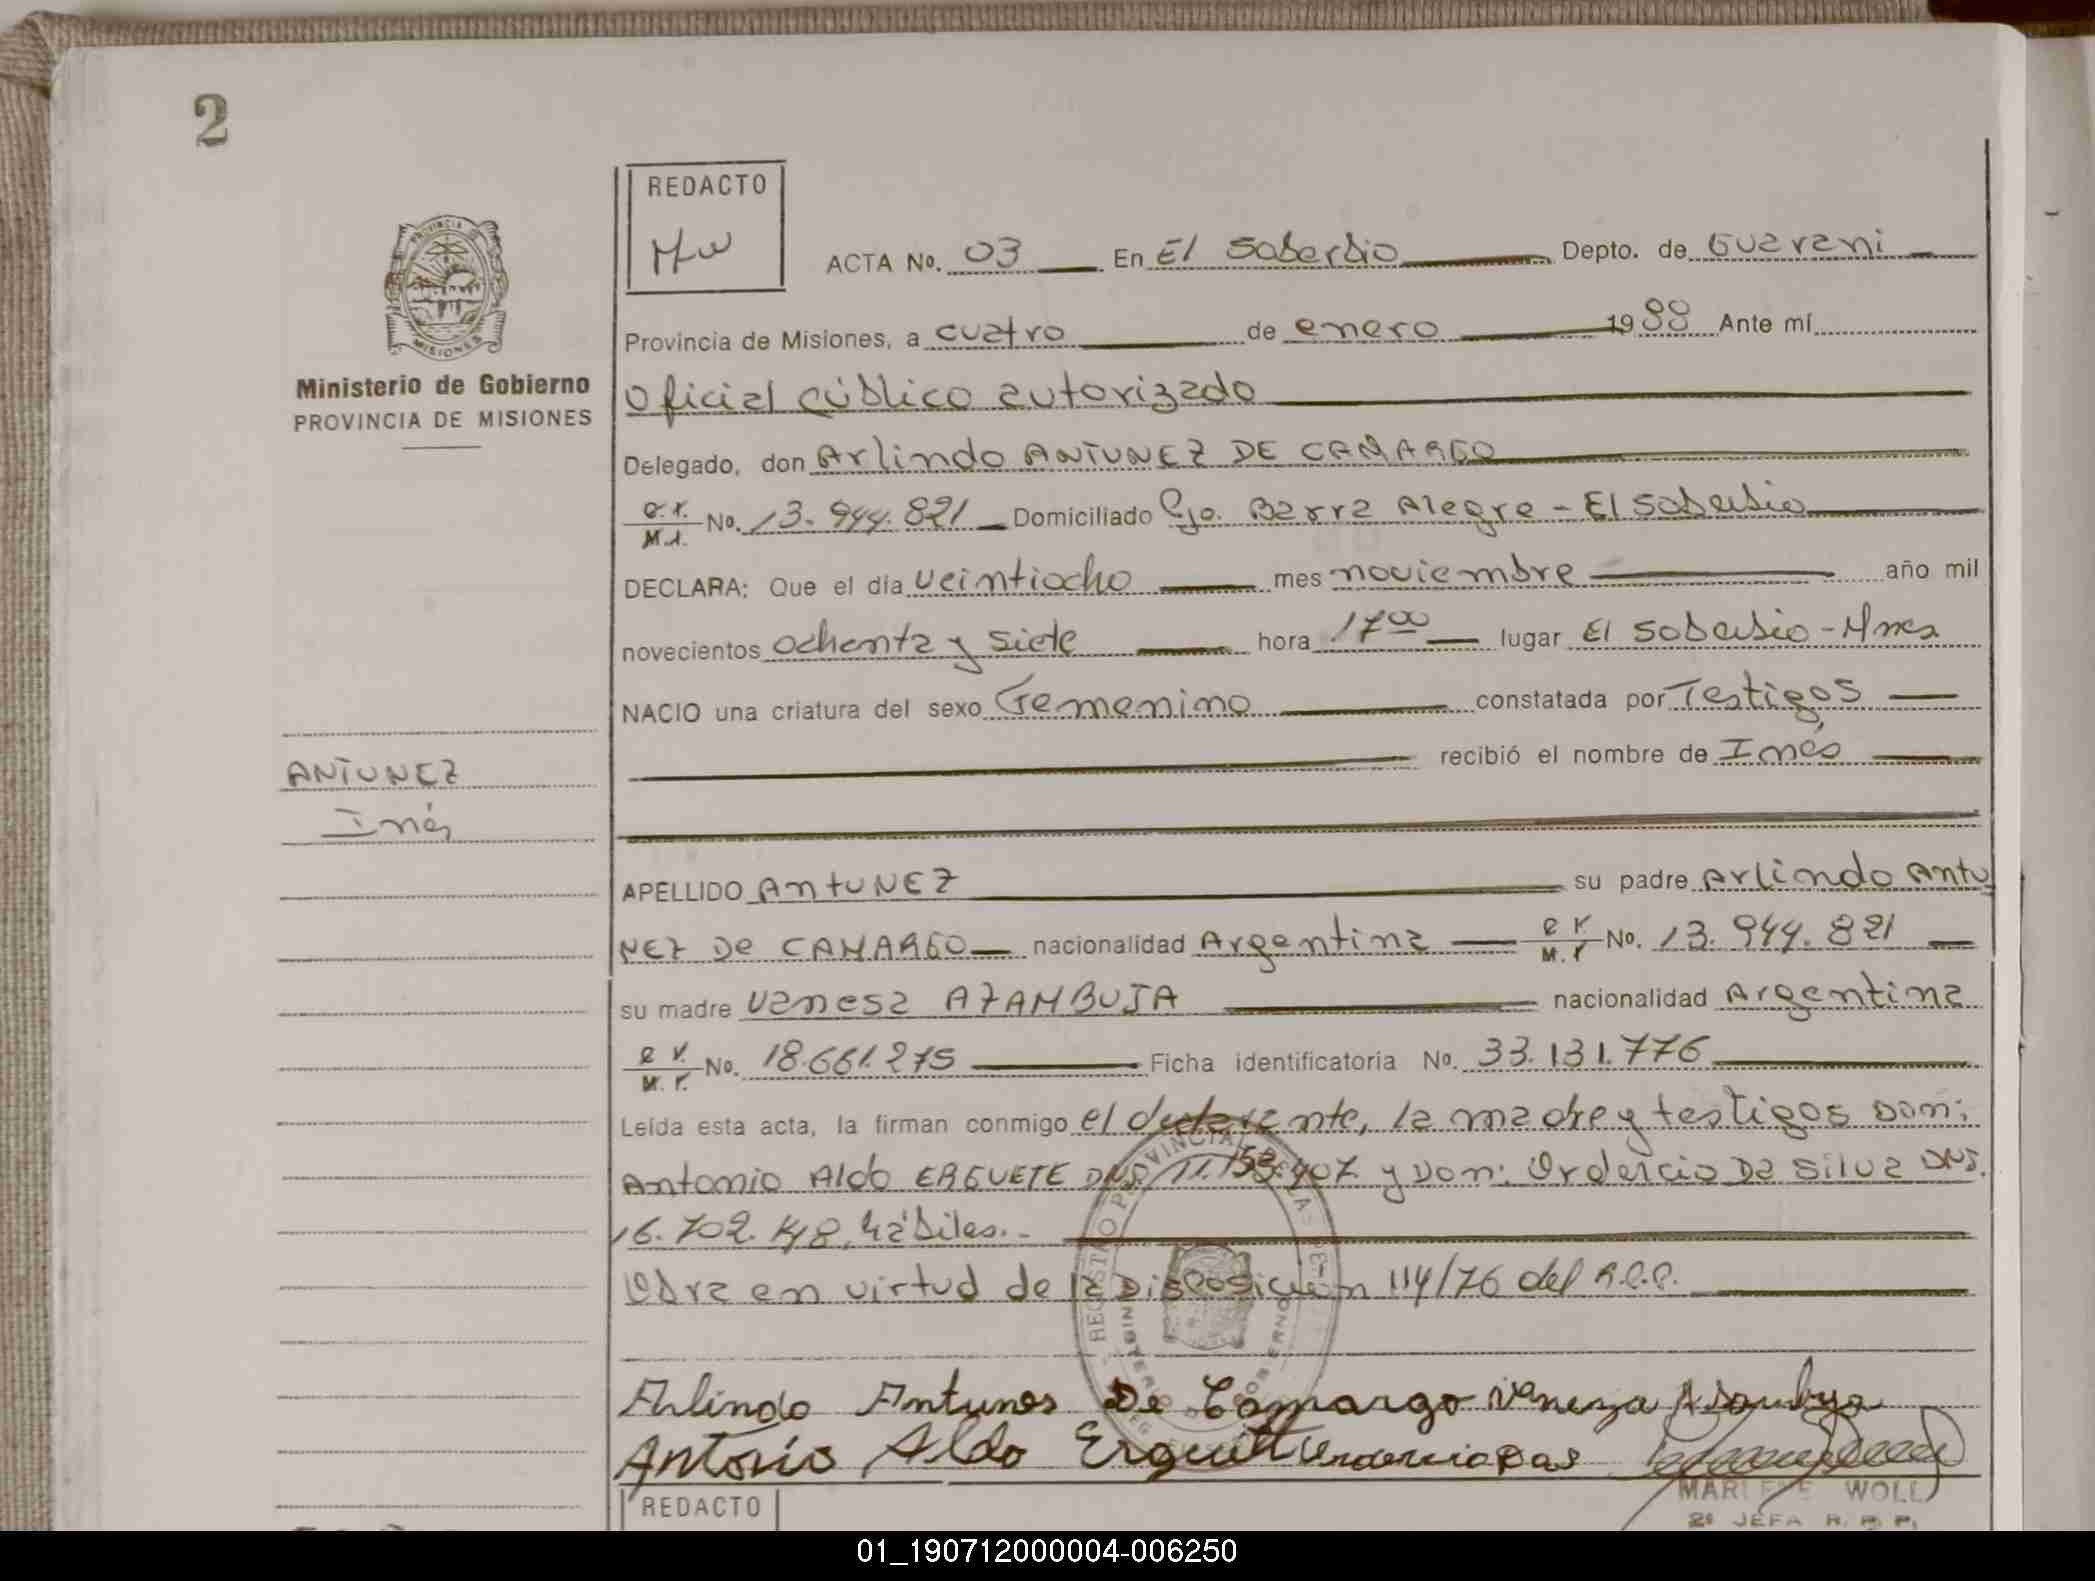 2
REDACTO
Mw
ACTA No. 03 En El Soberbio Depto. de Guarani
Provincia de Misiones, a cuatro de enero 1988 Ante mí
Oficial Público autorizado
Ministerio de Gobierno
PROVINCIA DE MISIONES
Delegado, don Arlindo ANTUNEZ DE CAMARGO
M.I. No. 13.944.821 Domiciliado Pje. Barra Alegre - El Soberbio
DECLARA: Que el día veintiocho mes noviembre año mil
novecientos ochenta y siete hora 17 00 lugar El Soberbio - Mnes
NACIO una criatura del sexo Femenino constatada por Testigos
recibió el nombre de Inés
ANTUNEZ
Inés
APELLIDO ANTUNEZ su padre Arlindo Antu
NEZ De CAMARGO nacionalidad Argentina M.I. No. 13.944.821
su madre Vanesa AZAMBUJA nacionalidad Argentina
M.I. No. 18.661.275 Ficha identificatoria No. 33.131.776
Leída esta acta, la firman conmigo el declarante, la madre y testigos Don:
Antonio Aldo ERGUETE DNI. 11.153.407 y Don: Ordercio Da Silva DNI.
16.702.148, hábiles.-
Obra en virtud de la Disposición 114/76 del R.P.P.
Arlindo Antunes De Camargo Vaneza Asambuya
Antônio Aldo Erguett
REGISTRO PROVINCIAL DE LAS PER
MINISTERIO DE GOBIERNO
MARLENE WOLL
2º JEFA R. P. P.
REDACTO
01_190712000004-006250